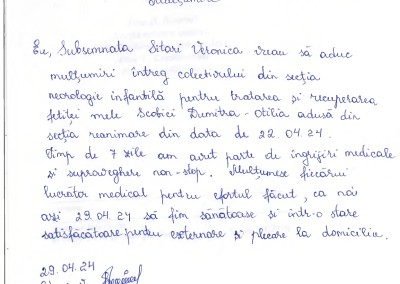 Mulțumire
Eu, Subsemnata Sitari Veronica vreau să aduc
mulțumiri întreg colectivului din secția
necrologie infantilă pentru tratarea și recuperarea
fetiței mele Scobici Dumitra-Otilia adusă din
secția reanimare din data de 22.04.24.
Timp de 7 zile am avut parte de îngrijiri medicale
și supraveghere non-stop. Mulțumesc fiecărui
lucrător medical pentru efortul făcut, ca noi
azi 29.04.24 să fim sănătoase și într-o stare
satisfăcătoare pentru externare și plecare la domiciliu.
29.04.24